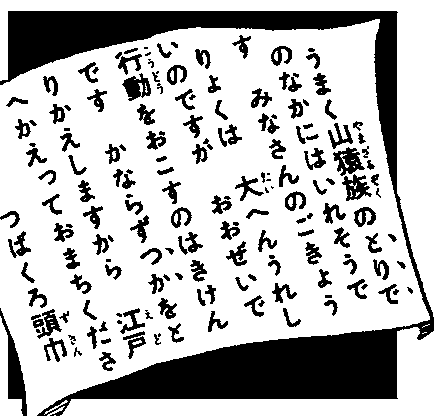 うまく山猿族のとりで
のなかにはいれそうで
す　みなさんのごきょう
りょくは　大へんうれし
いのですが　おおぜいで
行動をおこすのはきけん
です　かならずつかをと
りかえしますから　江戸
へかえっておまちくださ
つばくろ頭巾